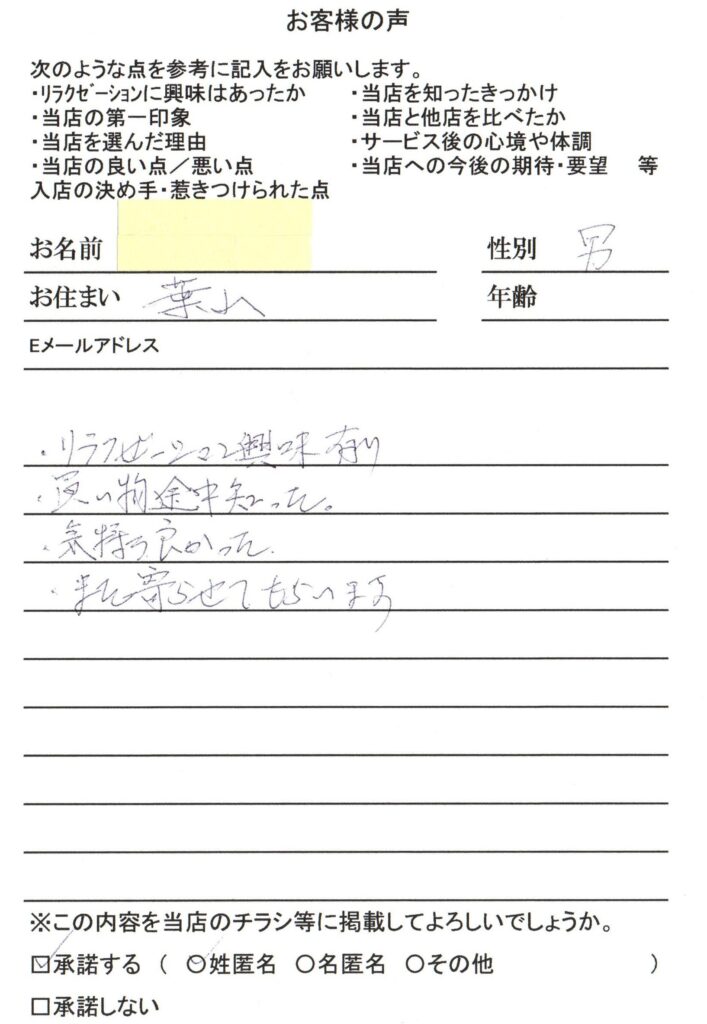 お客様の声
次のような点を参考に記入をお願いします。
・ﾘﾗｸｾﾞｰｼｮﾝに興味はあったか ・当店を知ったきっかけ
・当店の第一印象 ・当店と他店を比べたか
・当店を選んだ理由 ・サービス後の心境や体調
・当店の良い点／悪い点 ・当店への今後の期待・要望 等
入店の決め手・惹きつけられた点
お名前 性別 男
お住まい 葉山 年齢
Eメールアドレス
・リラクゼーション興味有り
・買い物途中知った。
・気持ち良かった
・また寄らせてもらいます
※この内容を当店のチラシ等に掲載してよろしいでしょうか。
☑承諾する ( ○姓匿名 ○名匿名 ○その他 )
□承諾しない